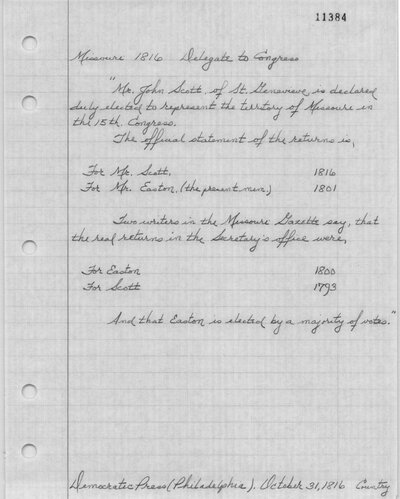 11384
Missouri 1816 Delegate to Congress
"Mr. John Scott of St. Genevieve, is declared
duly elected to represent the territory of Missouri in
the 15th. Congress.
The official statement of the returns is,
For Mr. Scott, 1816
For Mr. Easton, (the present mem.) 1801
Two writers in the Missouri Gazette say, that
the real returns in the Secretary's office were,
For Easton 1800
For Scott 1793
And that Easton is elected by a majority of votes."
Democratic Press (Philadelphia). October 31, 1816 Country